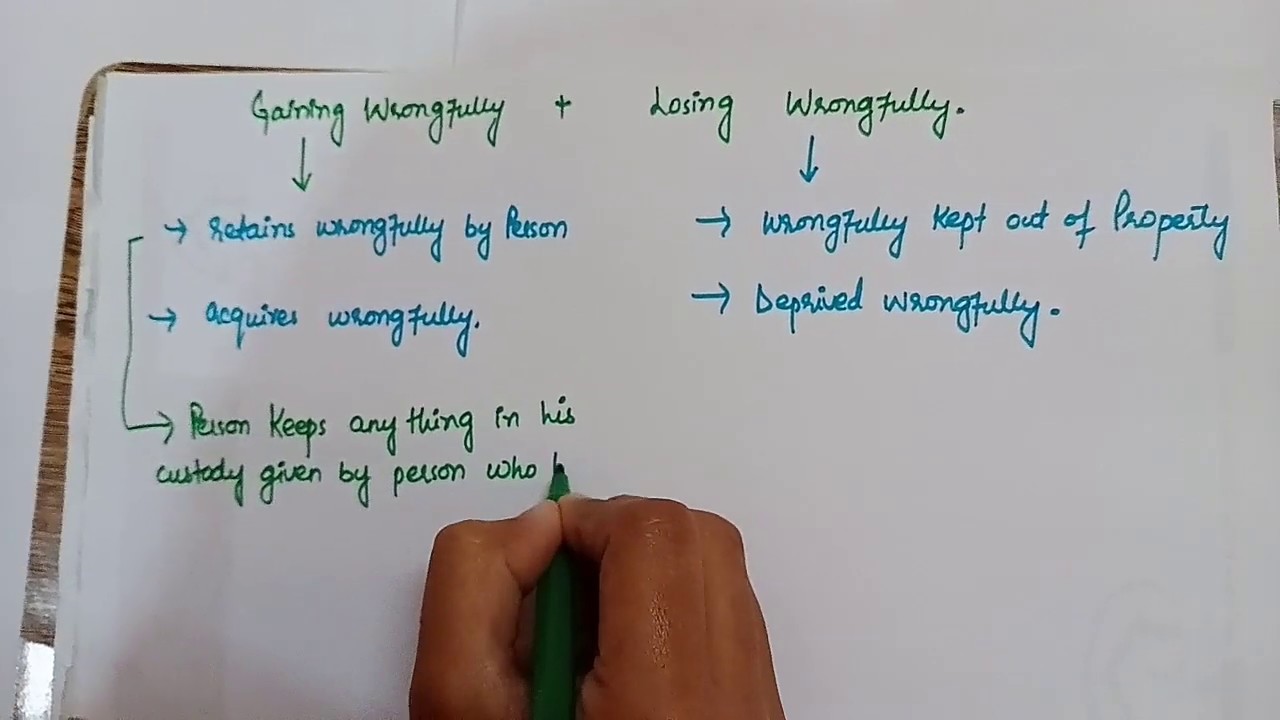 Gaining Wrongfully + Losing Wrongfully.
→ retains wrongfully by Person
→ acquires wrongfully.
→ Person Keeps any thing in his
custody given by person who
→ wrongfully Kept out of Property
→ Deprived wrongfully.